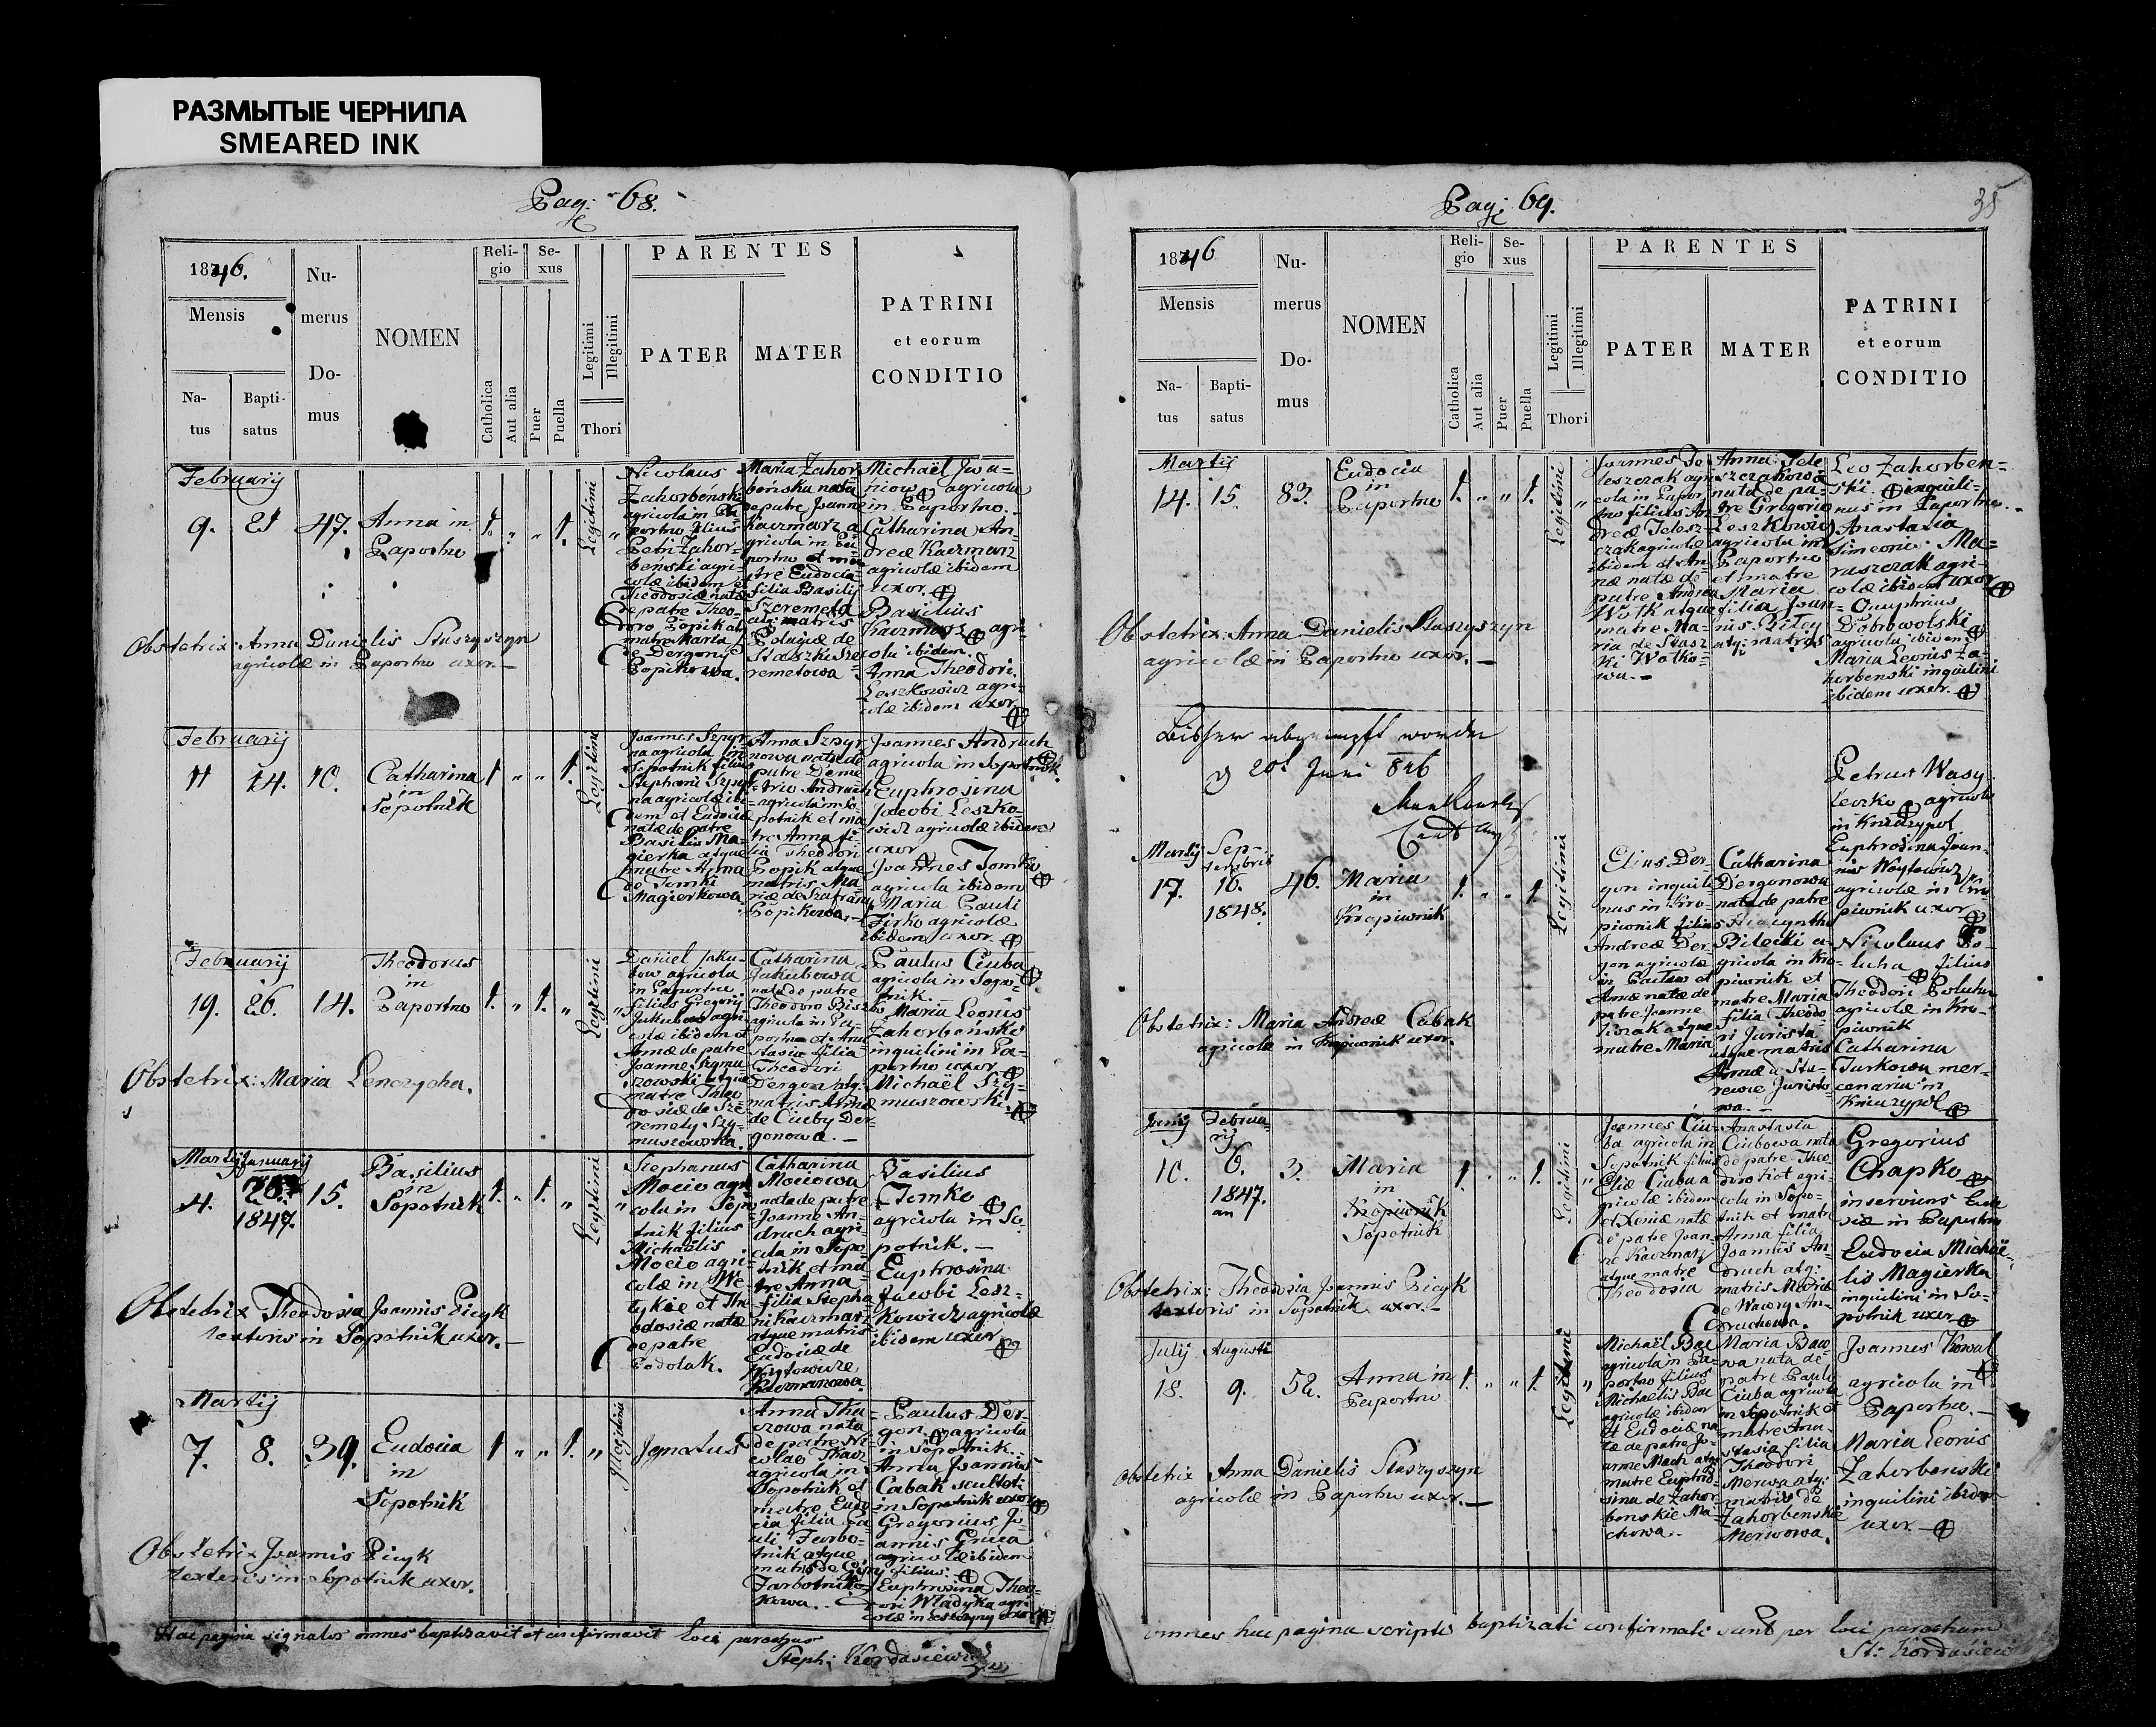 РАЗМЫТЫЕ ЧЕРНИЛА
SMEARED INK
Pag: 68.
1846.
Mensis
Na-
tus
Bapti-
satus
Nu-
merus
Do-
mus
NOMEN
Reli-
gio
Catholica
Aut alia
Se-
xus
Puer
Puella
Legitimi
Illegitimi
Thori
PARENTES
PATER
MATER
PATRINI
et eorum
CONDITIO
Februarij
9. 21 47. Anna in
Paportno
1. „ „ 1. Legitimi „
Nicolaus
Zahorbeński
agricola in Pa-
portno filius
Petri Zahor-
benski agri-
colæ ibidem et
Theodosiæ natæ
de patre Theo-
doro Popik atq
matre Maria
de Dergonij
Popikowa.
Maria Zahor-
beńska nata
de patre Joanne
Kaczmarz a-
gricola in Pa-
portno et ma-
tre Eudocia
filia Basilij
Szeremeta
atq: matris
Pelagiæ de
Staszki Sze-
remetowa
Michaël Iwa-
niow agricola
in Paportno.
Catharina An-
dreæ Kaczmarz
agricolæ ibidem
uxor.
Basilius
Kaczmarz agri-
cola ibidem.
Anna Theodori
Leszkowicz agri-
colæ ibidem uxor
Obstetrix: Anna Danielis Staszyszyn
agricolæ in Paportno uxor.—
Februarij
11 14. 10. Catharina
in
Sopotnik
1 „ „ 1. Legitimi
Joannes Szpyr-
na agricola in
Sopotnik filius
Stephani Szpyr-
na agricolæ ibi-
dem et Eudociæ
natæ de patre
Basilio Ma-
gierka atque
matre Anna
de Tomki
Magierkowa
Anna Szpyr-
nowa nata de
patre Deme-
trio Andruch
agricola in So-
potnik et ma-
tre Anna fi-
lia Theodori
Popik atque
matris Ma-
riæ de Szafrany
Popikowa.—
Joannes Andruch
agricola in Sopotnik
Euphrosina
Jacobi Leszko-
wicz agricolæ ibidem
uxor
Joannes Tomko
agricola ibidem
Maria Pauli
Firko agricolæ
ibidem uxor.
Februarij
19. 26. 14. Theodorus
in
Paportno
1. „ 1. „ Legitimi „
Daniel Jaku-
bow agricola
in Paportno
filius Gregorij
Jakubow agri-
colæ ibidem et
Annæ de patre
Joanne Szymu-
szowski atque
matre Theo-
dosiæ de Sze-
remety Szy-
muszowska.
Catharina
Jakubowa
nata de patre
Theodoro Biszko
agricola in Pa-
portno et Ana-
stasia filia
Theodori
Dergon atq:
matris Annæ
de Ciuby Der-
gonowa.—
Paulus Ciuba
agricola in Sopo-
tnik.
Maria Leonis
Zahorbenski
inquilini in Pa-
portno uxor
Michaël Szy-
muszowski
Obstetrix: Maria Lenczycha.
Martij Januarij
4. 28. 15. Basilius
1847. in
Sopotnik
1. „ 1. „ Legitimi „
Stephanus
Mocio agri-
cola in Sopo-
tnik filius
Michaëlis
Mocio agri-
colæ in We-
lykie et The-
odosiæ natæ
de patre
Podolak.
Catharina
Mociowa
nata de patre
Joanne An-
druch agri-
cola in Sopo-
tnik et ma-
tre Anna
filia Stepha-
ni Kaczmarz
atque matris
Eudociæ de
Woytowicze
Kaczmarzowa.
Basilius
Tomko
agricola in So-
potnik.—
Euphrosina
Jacobi Lesz-
kowicz agricolæ
ibidem uxor
Obstetrix Theodosia Joannis Picyk
textoris in Sopotnik uxor.—
Martij
7. 8. 39. Eudocia
in
Sopotnik
1 „ „ 1. „ Illegitimi
Ignatus
Anna Tka-
czowa nata
de patre Ni-
colao Tkacz
agricola in
Sopotnik et
matre Eudo-
cia filia Pa-
uli Farbo-
tnik atque
matris de Capy
Farbotnikowa.
Paulus Der-
gon agricola
in Sopotnik.
Anna Joannis
Cabak sculteti
in Sopotnik uxor
Gregorius Jo-
annis Gruca
agricolæ ibidem
filius.
Euphrosina Theo-
dori Wladyka agri-
colæ in uxor
Obstetrix Joannis Picyk
textoris in Sopotnik uxor.
Hac pagina signatos omnes baptisavit et confirmavit loci parochus
Steph: Kordasiewicz
Pag: 69.
35
1846
Mensis
Na-
tus
Bapti-
satus
Nu-
merus
Do-
mus
NOMEN
Reli-
gio
Catholica
Aut alia
Se-
xus
Puer
Puella
Legitimi
Illegitimi
Thori
PARENTES
PATER
MATER
PATRINI
et eorum
CONDITIO
Martij
14. 15. 83. Eudocia
in
Paportno
1. „ „ 1. Legitimi „
Joannes Te-
leszczak agri-
cola in Papor-
tno filius An-
dreæ Telesz-
czak agricolæ
ibidem et An-
næ natæ de
patre Andrea
Wolk atque
matre Ma-
ria de Stasz-
ki Wolko-
wa.—
Anna Tele-
szczakowa
nata de pa-
tre Gregorio
Leszkowicz
agricola in
Paportno
et matre
Maria
filia Joan-
nis Bilcy
atq: matris
Leo Zahorben-
ski inquili-
nus in Paportno.
Anastasia
Simeonis Ma-
ruszczak agri-
colæ ibidem uxor
Onuphrius
Dobrowolski
agricola ibidem
Maria Leonis Za-
horbenski inquilini
ibidem uxor.
Obstetrix: Anna Danielis Staszyszyn
agricolæ in Paportno uxor.—
Bisher abgeimpft worden
20t Juni 846
Martij Sep-
tembris
17. 16. 46. Maria
1848. in
Kropiwnik
1. „ „ 1. Legitimi
Elias Der-
gon inquili-
nus in Kro-
piwnik filius
Andreæ Der-
gon agricolæ
in et
Annæ natæ de
patre Joanne
atque
matre Maria
Catharina
Dergonowa
nata de patre
Hiacyntho
Bilecki a-
gricola in Kro-
piwnik et
matre Maria
filia Theodo-
ri Jurista
atque matris
Annæ a Stu-
rewie Juristo-
wa.—
Petrus Wasy-
leczko agricola
in Kniazypol
Euphrosina Joan-
nis Woytowicz
agricolæ in Kro-
piwnik uxor
Nicolaus Po-
lucha filius
Theodori Polucha
agricolæ in Kro-
piwnik
Catharina
Turkowa mer-
cenaria in
Kniazypol
Obstetrix: Maria Andreæ Cabak
agricolæ in Kropiwnik uxor.
Junij Februa-
rij
10. 6. 3. Maria
1847. in
an Kropiwnik
Sopotnik
1. „ „ 1. Legitimi „
Joannes Ciu-
ba agricola in
Sopotnik filius
Eliæ Ciuba a-
gricolæ ibidem
et Xeniæ natæ
de patre Joan-
ne Kaczmarz
atque matre
Theodosia
Anastasia
Ciubowa nata
de patre Theo-
doro Kot agri-
cola in Sopo-
tnik et matre
Anna filia
Joannis An-
druch atq:
matris Mariæ
e Wawry An-
druchowa.
Gregorius
Chapko
inserviens Eccle-
siæ in Paportno
Eudocia Michaë-
lis Magierka
inquilini in So-
potnik uxor
Obstetrix: Theodosia Joannis Picyk
textoris in Sopotnik uxor.—
Julij Augusti
18. 9. 52. Anna in
Paportno
1. „ „ 1. Legitimi „
Michaël Bac
agricola in Pa-
portno filius
Michaëlis Bac
agricolæ ibidem
et Eudociæ na-
tæ de patre Jo-
anne Mach atq:
matre Euphro-
sina de Zahor-
benskie Ma-
chowa.
Maria Baco-
wa nata de
patre Pauli
Ciuba agricola
in Sopotnik et
matre Ana-
stasia filia
Theodori
Merwa atq:
matris de
Zahorbenskie
Merwowa.
Joannes Kowal
agricola in
Paportno.—
Maria Leonis
Zahorbenski
inquilini ibidem
uxor.—
Obstetrix Anna Danielis Staszyszyn
agricolæ in Paportno uxor.—
omnes hac pagina scripti baptizati confirmati sunt per loci parochum
St: Kordasiewicz